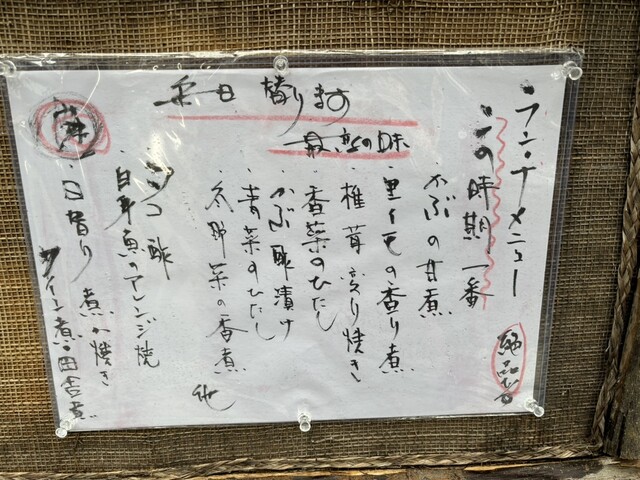 ランチメニュー
絶品
この時期一番
かぶの甘煮
里イモの香り煮
椎茸 炙り焼き
香菜のひたし
かぶ酢漬け
青菜のひたし
冬野菜の香煮
他
毎日 替ります
最高の味
ナマコ酢
白身魚のアレンジ焼
日替り 煮か焼き
ワイン煮・田舎煮